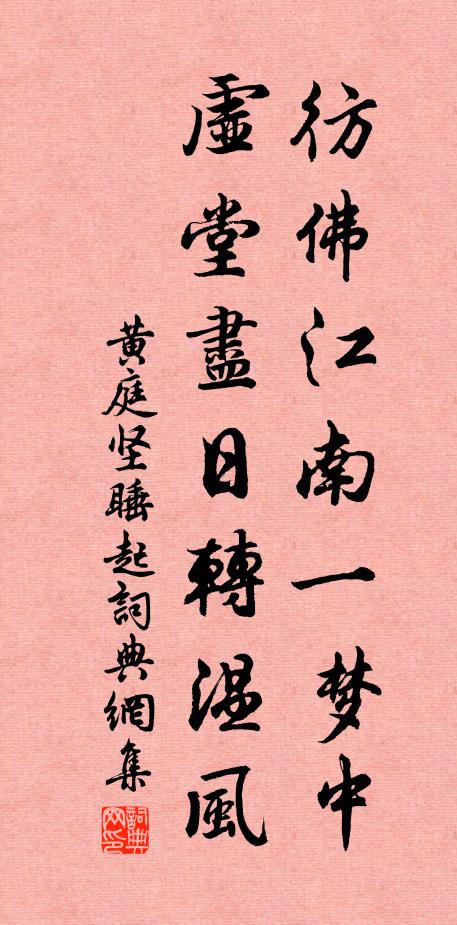 彷佛江南一梦中
虛堂盡日轉温風
黄庭坚睡起詞典網集
詞典网印